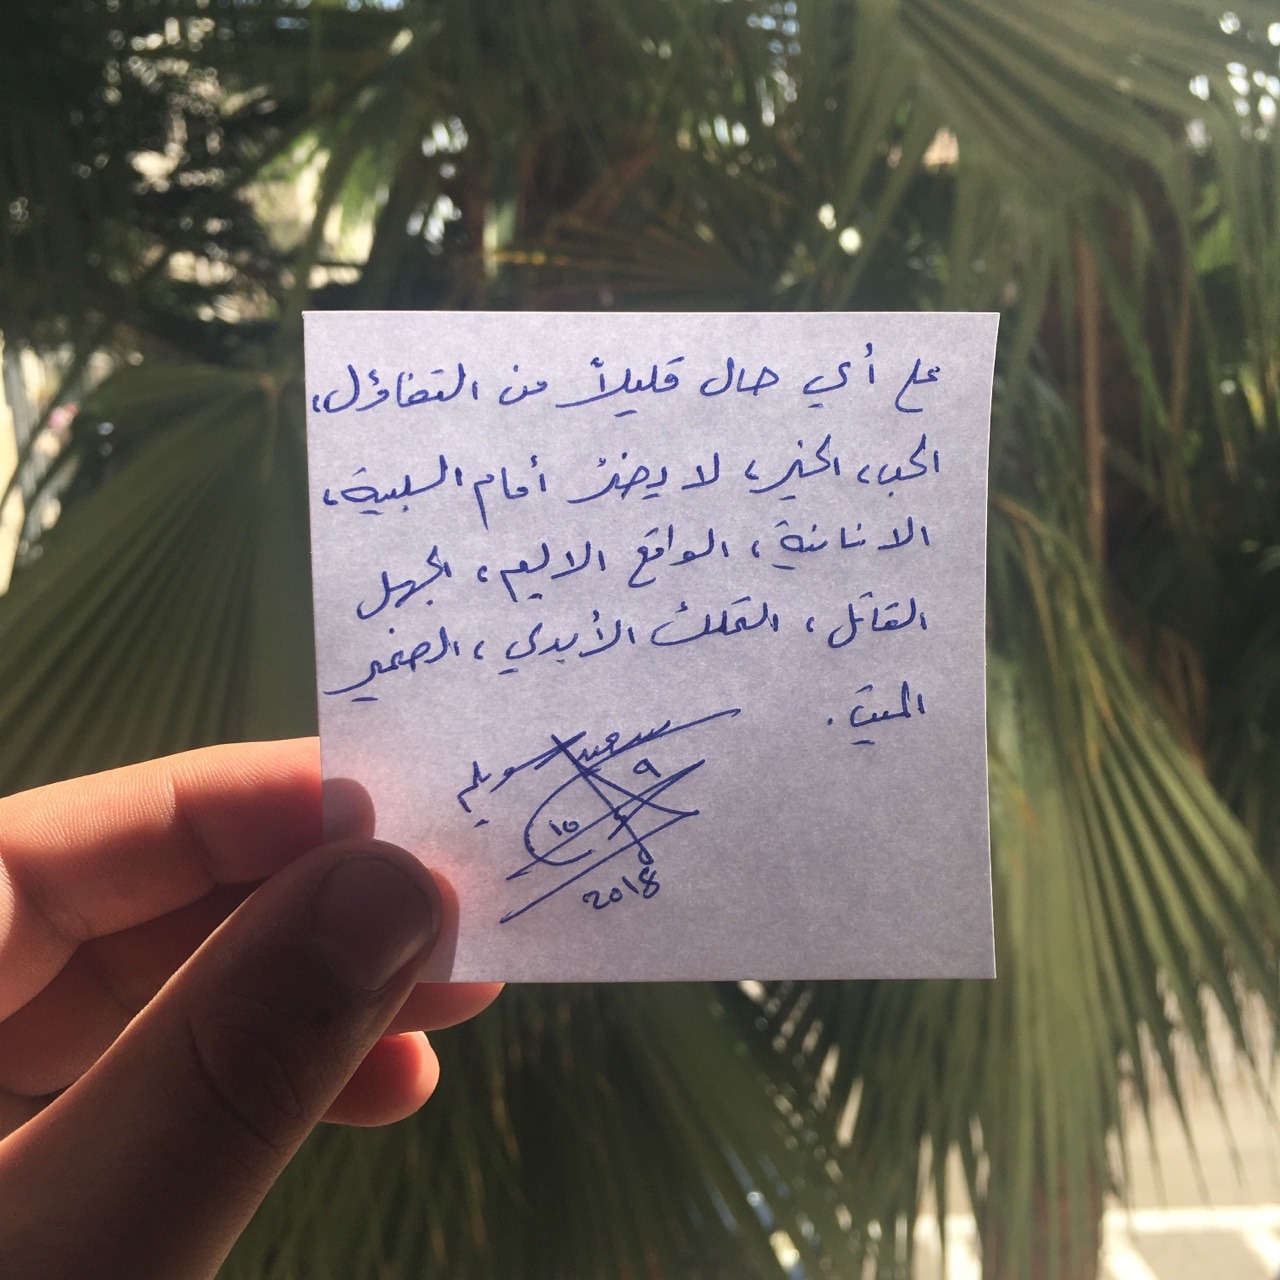 على أي حال قليلاً من التفاؤل،
الحب، الخير، لا يضرّ أمام السلبية،
الانانية، الواقع الاليم، الجهل
القاتل، التملك الأبدي، الضمير
الميت.
سعيد سويلم
٩
10
2018